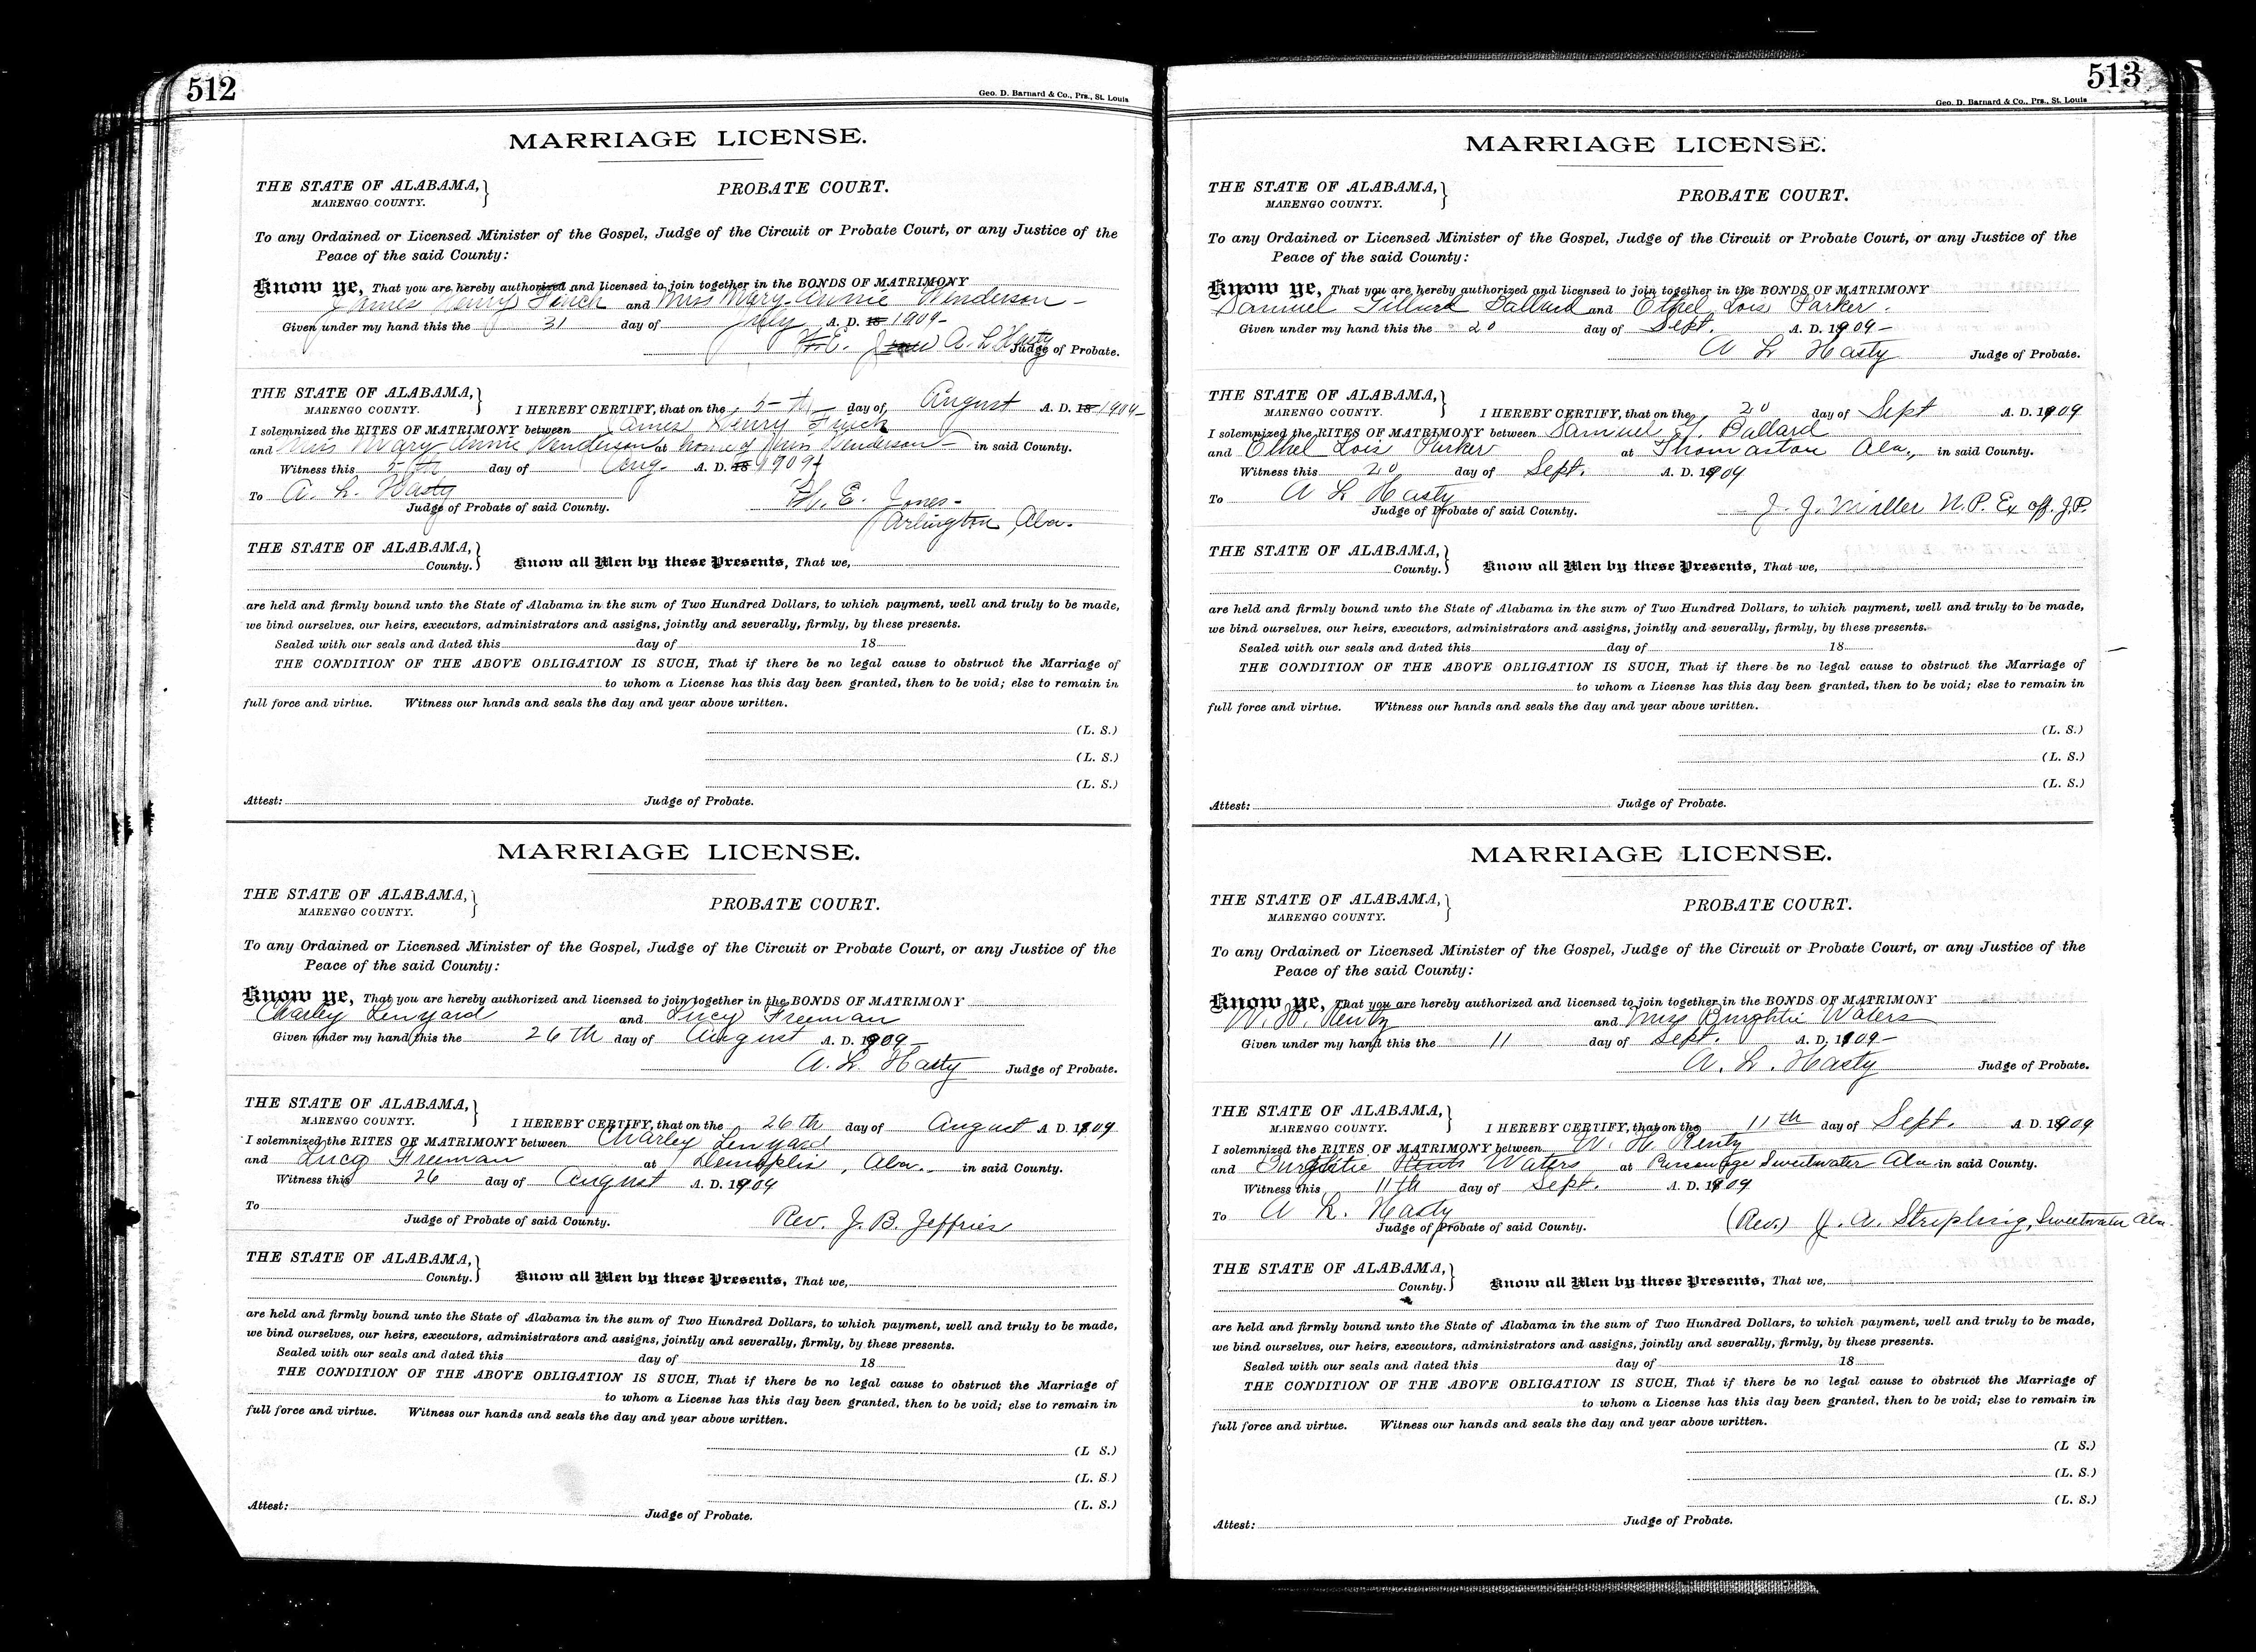 512
Geo. D. Barnard & Co., Prs., St. Louis
MARRIAGE LICENSE.
THE STATE OF ALABAMA,
MARENGO COUNTY.
PROBATE COURT.
To any Ordained or Licensed Minister of the Gospel, Judge of the Circuit or Probate Court, or any Justice of the
Peace of the said County:
Know ye, That you are hereby authorized and licensed to join together in the BONDS OF MATRIMONY
James Henry Finch and Miss Mary Annie Henderson
Given under my hand this the 31 day of July A. D. 18 1909
A. L. Hasty Judge of Probate.
THE STATE OF ALABAMA,
MARENGO COUNTY.
I HEREBY CERTIFY, that on the 5th day of August A. D. 18 1909
I solemnized the RITES OF MATRIMONY between James Henry Finch
and Miss Mary Annie Henderson at home of Miss Henderson in said County.
Witness this 5th day of Aug. A. D. 18 1909
To A. L. Hasty
Judge of Probate of said County.
E. Jones
Arlington, Ala.
THE STATE OF ALABAMA,
County.
Know all Men by these Presents, That we,
are held and firmly bound unto the State of Alabama in the sum of Two Hundred Dollars, to which payment, well and truly to be made,
we bind ourselves, our heirs, executors, administrators and assigns, jointly and severally, firmly, by these presents.
Sealed with our seals and dated this day of 18
THE CONDITION OF THE ABOVE OBLIGATION IS SUCH, That if there be no legal cause to obstruct the Marriage of
to whom a License has this day been granted, then to be void; else to remain in
full force and virtue. Witness our hands and seals the day and year above written.
(L. S.)
(L. S.)
(L. S.)
Attest: Judge of Probate.
MARRIAGE LICENSE.
THE STATE OF ALABAMA,
MARENGO COUNTY.
PROBATE COURT.
To any Ordained or Licensed Minister of the Gospel, Judge of the Circuit or Probate Court, or any Justice of the
Peace of the said County:
Know ye, That you are hereby authorized and licensed to join together in the BONDS OF MATRIMONY
Charley Lenyard and Lucy Freeman
Given under my hand this the 26th day of August A. D. 1909
A. L. Hasty Judge of Probate.
THE STATE OF ALABAMA,
MARENGO COUNTY.
I HEREBY CERTIFY, that on the 26th day of August A D. 1909
I solemnized the RITES OF MATRIMONY between Charley Lenyard
and Lucy Freeman at Demoplis, Ala. in said County.
Witness this 26 day of August A. D. 1909
To
Judge of Probate of said County.
Rev. J. B. Jeffries
THE STATE OF ALABAMA,
County.
Know all Men by these Presents, That we,
are held and firmly bound unto the State of Alabama in the sum of Two Hundred Dollars, to which payment, well and truly to be made,
we bind ourselves, our heirs, executors, administrators and assigns, jointly and severally, firmly, by these presents.
Sealed with our seals and dated this day of 18
THE CONDITION OF THE ABOVE OBLIGATION IS SUCH, That if there be no legal cause to obstruct the Marriage of
to whom a License has this day been granted, then to be void; else to remain in
full force and virtue. Witness our hands and seals the day and year above written.
(L S.)
(L. S.)
(L. S.)
Attest: Judge of Probate.
513
Geo. D. Barnard & Co., Prs., St. Louis
MARRIAGE LICENSE.
THE STATE OF ALABAMA,
MARENGO COUNTY.
PROBATE COURT.
To any Ordained or Licensed Minister of the Gospel, Judge of the Circuit or Probate Court, or any Justice of the
Peace of the said County:
Know ye, That you are hereby authorized and licensed to join together in the BONDS OF MATRIMONY
Samuel Ballard and Ethel Lois Parker.
Given under my hand this the 20 day of Sept. A. D. 1909
A L Hasty Judge of Probate.
THE STATE OF ALABAMA,
MARENGO COUNTY.
I HEREBY CERTIFY, that on the 20 day of Sept A. D. 1909
I solemnized the RITES OF MATRIMONY between Samuel Ballard
and Ethel Lois Parker at Thomaston Ala., in said County.
Witness this 20 day of Sept. A. D. 1909
To A L Hasty
Judge of Probate of said County.
J. J. Miller N.P. Ex off. J.P.
THE STATE OF ALABAMA,
County.
Know all Men by these Presents, That we,
are held and firmly bound unto the State of Alabama in the sum of Two Hundred Dollars, to which payment, well and truly to be made,
we bind ourselves, our heirs, executors, administrators and assigns, jointly and severally, firmly, by these presents.
Sealed with our seals and dated this day of 18
THE CONDITION OF THE ABOVE OBLIGATION IS SUCH, That if there be no legal cause to obstruct the Marriage of
to whom a License has this day been granted, then to be void; else to remain in
full force and virtue. Witness our hands and seals the day and year above written.
(L. S.)
(L. S.)
(L. S.)
Attest: Judge of Probate.
MARRIAGE LICENSE.
THE STATE OF ALABAMA,
MARENGO COUNTY.
PROBATE COURT.
To any Ordained or Licensed Minister of the Gospel, Judge of the Circuit or Probate Court, or any Justice of the
Peace of the said County:
Know ye, That you are hereby authorized and licensed to join together in the BONDS OF MATRIMONY
W. H. Rentz and Miss Waters
Given under my hand this the 11 day of Sept. A. D. 1909
A. L. Hasty Judge of Probate.
THE STATE OF ALABAMA,
MARENGO COUNTY.
I HEREBY CERTIFY, that on the 11th day of Sept. A. D. 1909
I solemnized the RITES OF MATRIMONY between W. H Rentz
and Waters at Parsonage Sweetwater Ala in said County.
Witness this 11th day of Sept. A. D. 1909
To A L. Hasty
Judge of Probate of said County.
(Rev.) J. A. Stripling, Sweetwater Ala.
THE STATE OF ALABAMA,
County.
Know all Men by these Presents, That we,
are held and firmly bound unto the State of Alabama in the sum of Two Hundred Dollars, to which payment, well and truly to be made,
we bind ourselves, our heirs, executors, administrators and assigns, jointly and severally, firmly, by these presents.
Sealed with our seals and dated this day of 18
THE CONDITION OF THE ABOVE OBLIGATION IS SUCH, That if there be no legal cause to obstruct the Marriage of
to whom a License has this day been granted, then to be void; else to remain in
full force and virtue. Witness our hands and seals the day and year above written.
(L S.)
(L. S.)
(L. S.)
Attest: Judge of Probate.